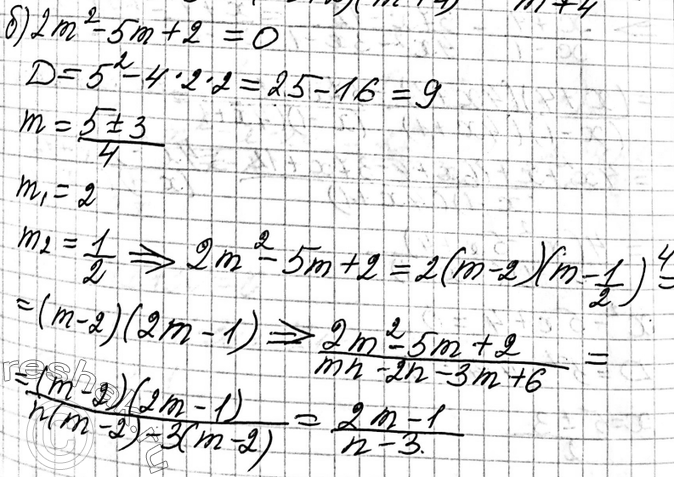 m+4
б) 2m² - 5m + 2 = 0
D = 5² - 4 · 2 · 2 = 25 - 16 = 9
m = (5 ± 3)/4
m₁ = 2
m₂ = 1/2 ⇒ 2m² - 5m + 2 = 2(m - 2)(m - 1/2) =
= (m - 2)(2m - 1) ⇒ (2m² - 5m + 2)/(mn - 2n - 3m + 6) =
= ((m - 2)(2m - 1))/(n(m - 2) - 3(m - 2)) = (2m - 1)/(n - 3)